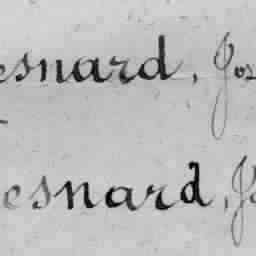 esnard, Jos
esnard, J